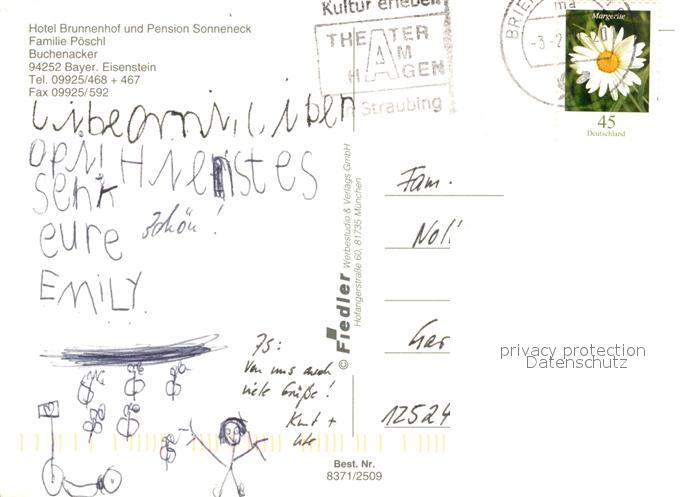 Hotel Brunnenhof und Pension Sonneneck
Familie Pöschl
Buchenacker
94252 Bayer. Eisenstein
Tel. 09925/468 + 467
Fax 09925/592
Kultur erleben
THEATER
AM
HAGEN
Straubing
BRIE
Margerite
45
Deutschland
Libeomi, Liben
opi! Hier istes
sehR
schön!
eure
EMILY
PS:
Von uns auch
viele Grüße!
Kurt +
Ute
© Fiedler Werbestudio & Verlags GmbH
Hofangerstraße 60, 81735 München
Fam.
Nol
12524
privacy protection
Datenschutz
Best. Nr.
8371/2509